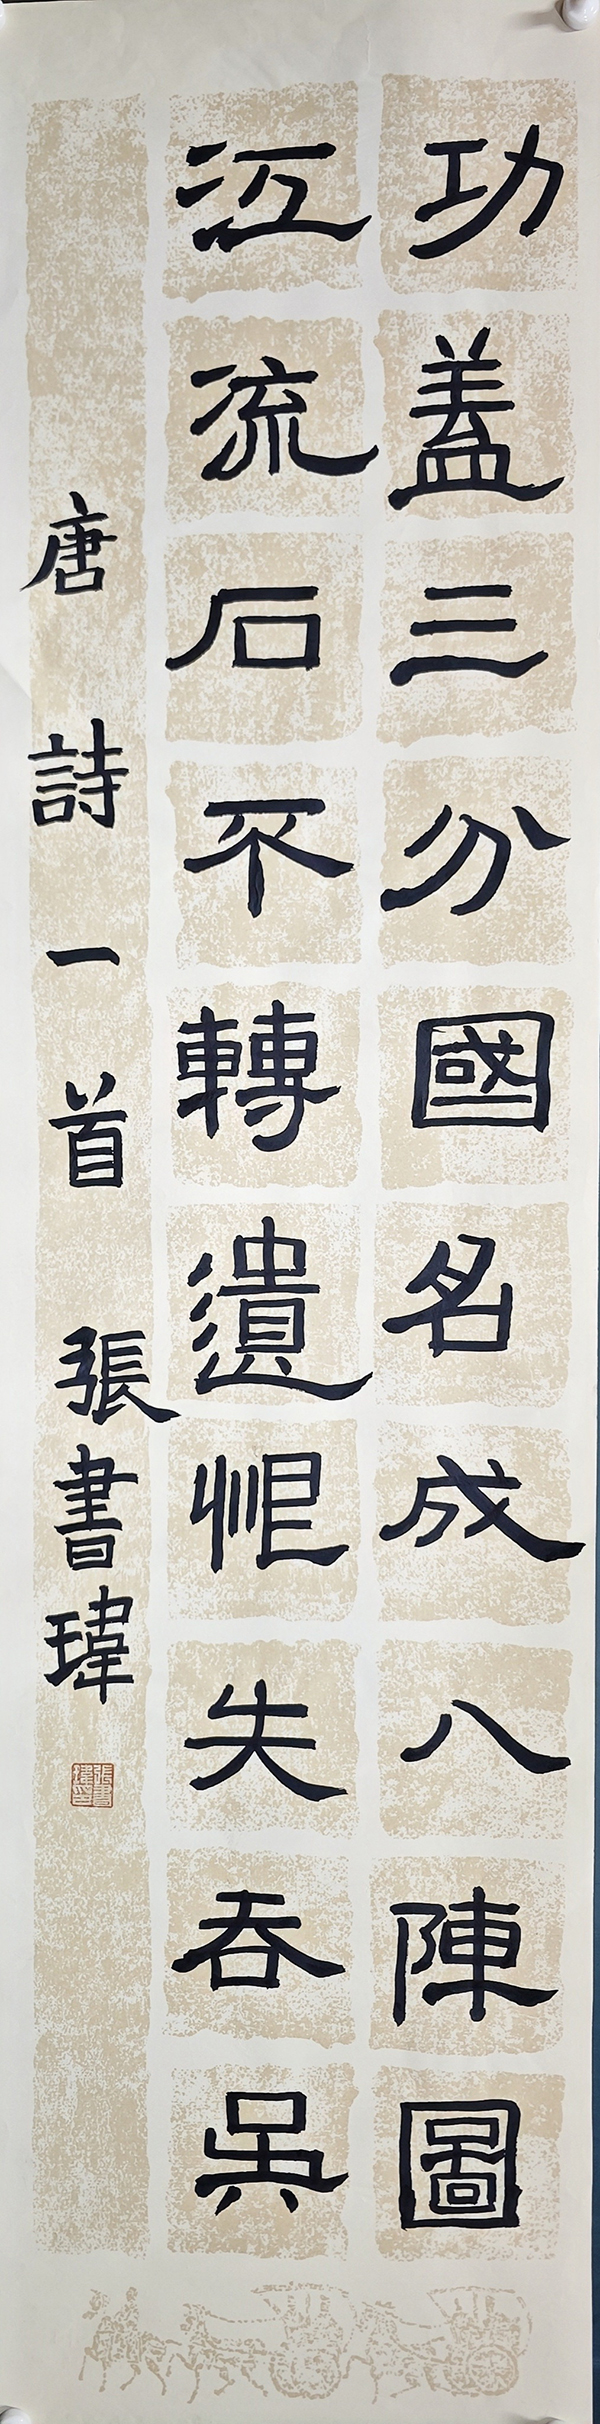 功盖三分國名成八陣圖
江流石不轉遺恨失吞吳
唐詩一首 張書瑋
張書瑋印